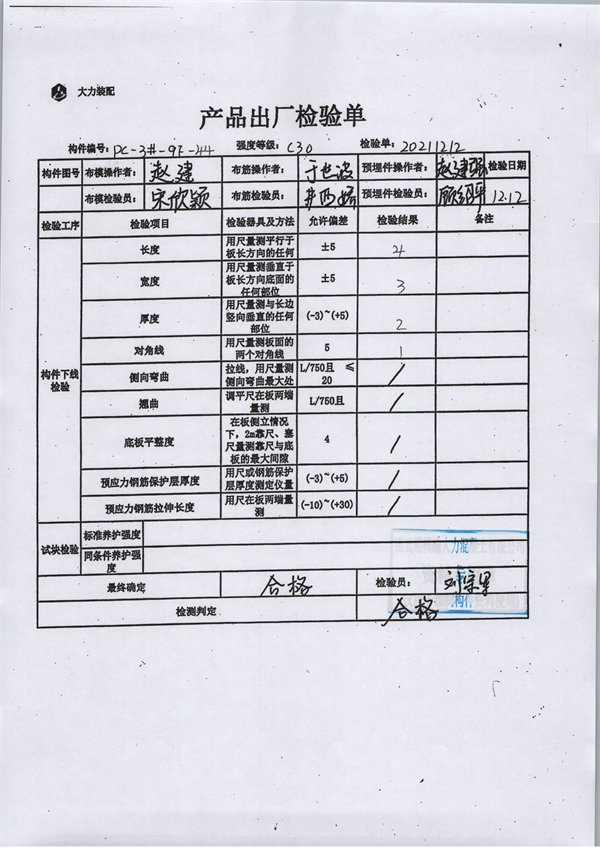 大力装配
产品出厂检验单
构件编号: PC-3#-9F-44 强度等级: C30 检验单: 20211212
构件图号 布模操作者: 赵建 布筋操作者: 于世波 预埋件操作者: 赵建强 检验日期
布模检验员: 宋欣颖 布筋检验员: 预埋件检验员: 12.12
检验工序 检验项目 检验器具及方法 允许偏差 检验结果 备注
构件下线检验
长度 用尺量测平行于板长方向的任何 ±5 4
宽度 用尺量测垂直于板长方向底面的任何部位 ±5 3
厚度 用尺量测与长边竖向垂直的任何部位 (-3)~(+5) 2
对角线 用尺量测板面的两个对角线 5 1
侧向弯曲 拉线，用尺量测侧向弯曲最大处 L/750且 ≤20 /
翘曲 调平尺在板两端量测 L/750且 /
底板平整度 在板侧立情况下，2m靠尺、塞尺量测靠尺与底板的最大间隙 4 /
预应力钢筋保护层厚度 用尺或钢筋保护层厚度测定仪量 (-3)~(+5) /
预应力钢筋拉伸长度 用尺在板两端量测 (-10)~(+30) /
试块检验 标准养护强度
同条件养护强度
最终确定 合格 检验员:
检测判定 合格